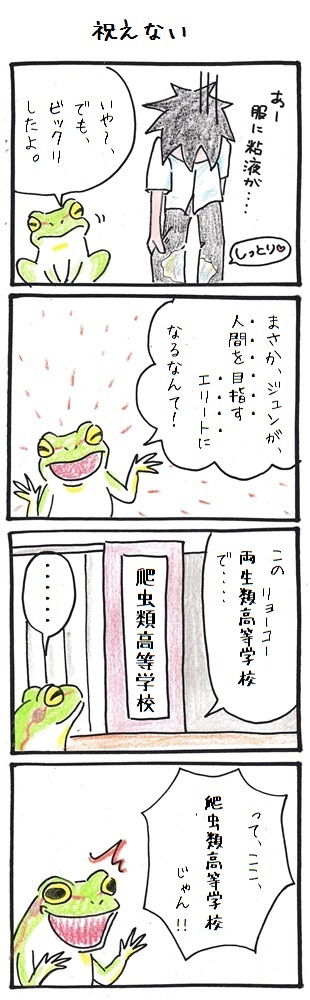 祝えない
あー
服に粘液が……
しっとり♡
いや〜、
でも、
ビックリ
したよ。
まさか、ジュンが、
人間を目指す
エリートに
なるなんて！
この
リョーコー
両生類高等学校
で……
爬虫類高等学校
・・・・・・
って、ここ、
爬虫類高等学校
じゃん！！